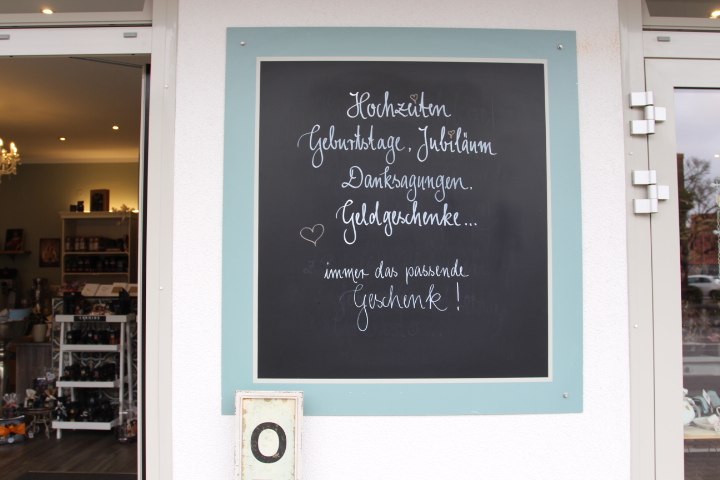 Hochzeiten
Geburtstage, Jubiläum
Danksagungen,
Geldgeschenke...
immer das passende
Geschenk !
O